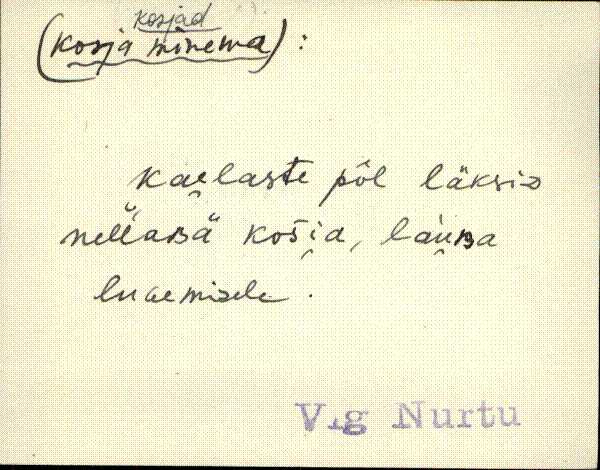 kosjad
(kosja minema):
kae̯laste pöl läksiᴅ
nellaʙä koši̯a, lau̯ʙa
lugemisele.
Vig Nurtu